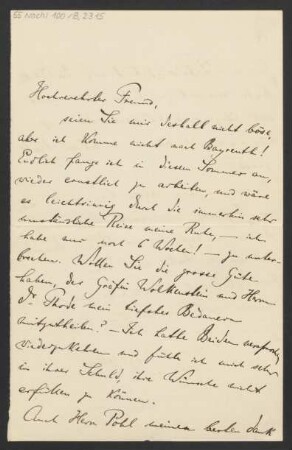 55 Nachl 100 / B, 2315
Hochverehrter Freund,
seien Sie mir deshalb nicht böse,
aber ich komme nicht nach Bayreuth!
Endlich fange ich in diesem Sommer an,
wieder ernstlich zu arbeiten, und wäre
es leichtsinnig durch die immerhin sehr
umständliche Reise meine Ruhe, — ich
habe nur noch 6 Wochen! — zu unter-
brechen. Wollen Sie die grosse Güte
haben, der Gräfin Wolkenstein und Herrn
Dr. Thode mein tiefstes Bedauern
mitzutheilen? — Ich hatte Beiden versprochen,
wiederzukehren und fühle ich mich sehr
in ihrer Schuld, ihre Wünsche nicht
erfüllen zu können.
Auch Herrn Pohl meinen besten Dank